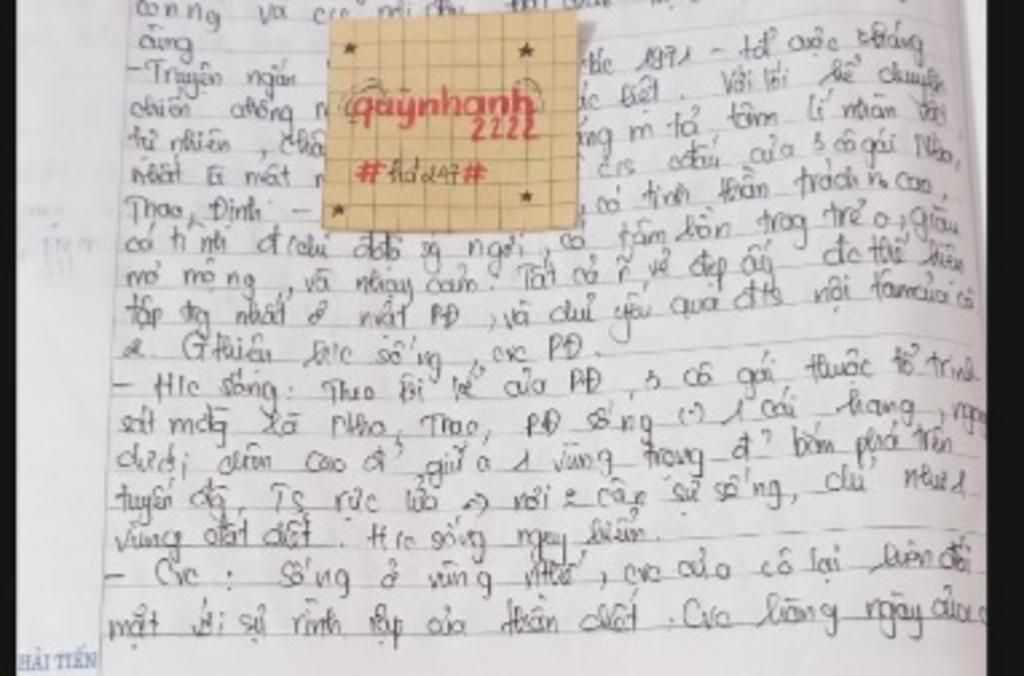 công và
ăng
-Truyện ngắn 1971 - tđ cuộc kháng
chiến chống biệt. Với lối kể chuyện
tự nhiên, m tả tâm lí nhân vật
nhất là mắt của 3 cô gái Nho,
Thao, Định - có tinh thần trách n cao,
có tình đ , có tâm hồn trog trẻo, giàu
mơ mộng, và nhạy cảm. Tất cả n vẻ đẹp ấy đc thể hiện
tập tg nhất ở nvật PĐ, và chủ yếu qua nội tâm của cô
2. Gthiệu sống, cvc PĐ.
- Hc sống: Theo lời kể của PĐ, 3 cô gái thuộc tổ trinh
sát mđg là Nho, Thao, PĐ sống (-) 1 cái hang, ngay
dưới chân cao đ' giữa 1 vùng trọng đ' bắn phá trên
tuyến đg, TS rực lửa => nơi cận sự sống, như 1
vùng đất chết. Hc sống nguy hiểm.
- Cvc: Sống ở vùng như thế, cvc của cô lại luôn đối
mặt với sự rình rập của thần chết. Cvc hàng ngày của
quỳnhanh
2222
#hd247#
HẢI TIẾN